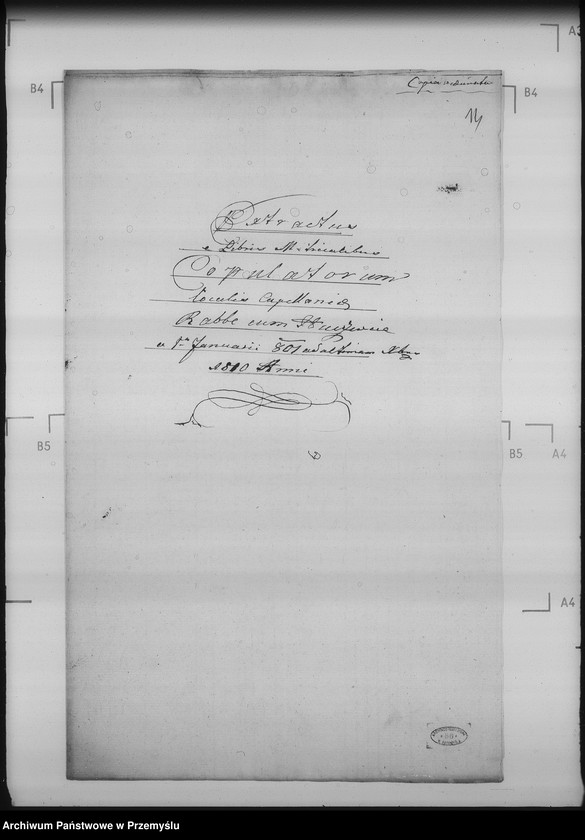 A3
B4
B4
Copia
14
Extractus
e Libris Metricalibus
Copulatorum
localis Capellaniae
Rabbe cum
a 1ma Januarii 801 ad ultimam Xbris
1810 Anni
B5
B5
A4
A4
Archiwum Państwowe w Przemyślu